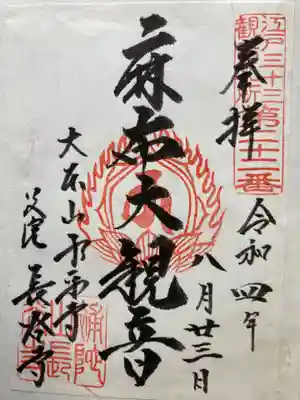 江戸三十三
観音札所
第二十二番
奉拝
令和四年
八月廿三日
麻布大観音
大本山永平寺
別院長谷寺